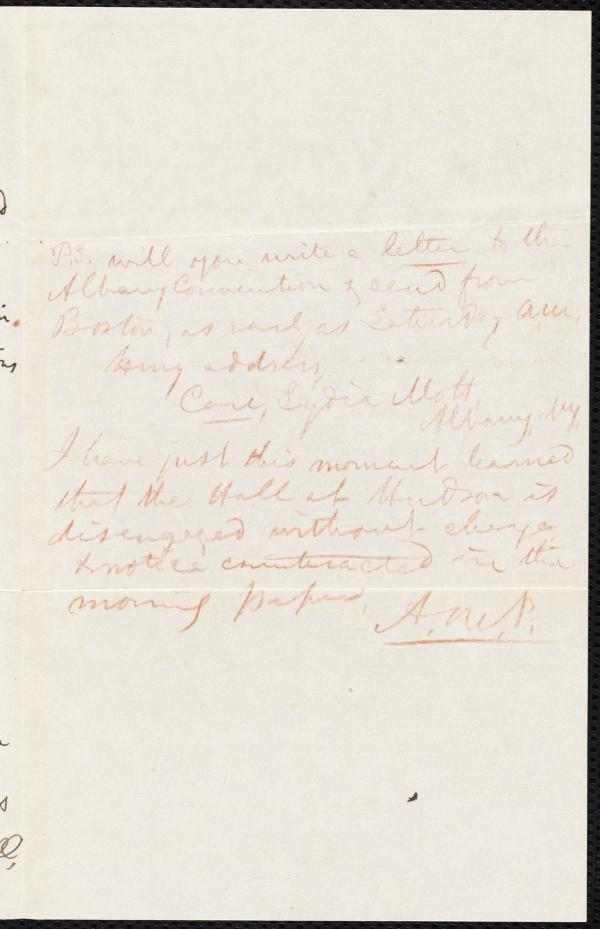 P.S. will you write a letter to the
Albany Convention & send from
Boston, as early as Saturday A.M.
to my address,
Care, Lydia Mott,
Albany, N.Y.
I have just this moment learned
that the Hall at Hudson is
disengaged without charge
& notice counteracted in the
morning papers,
A. M. P.